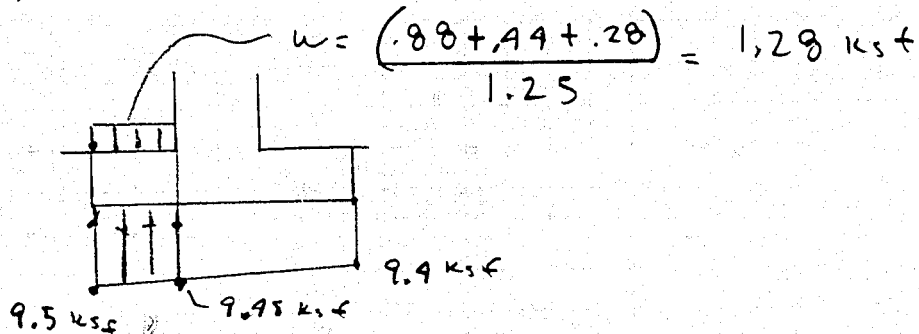 w = (.88+.44+.28) / 1.25 = 1.28 ksf
9.4 ksf
9.45 ksf
9.5 ksf